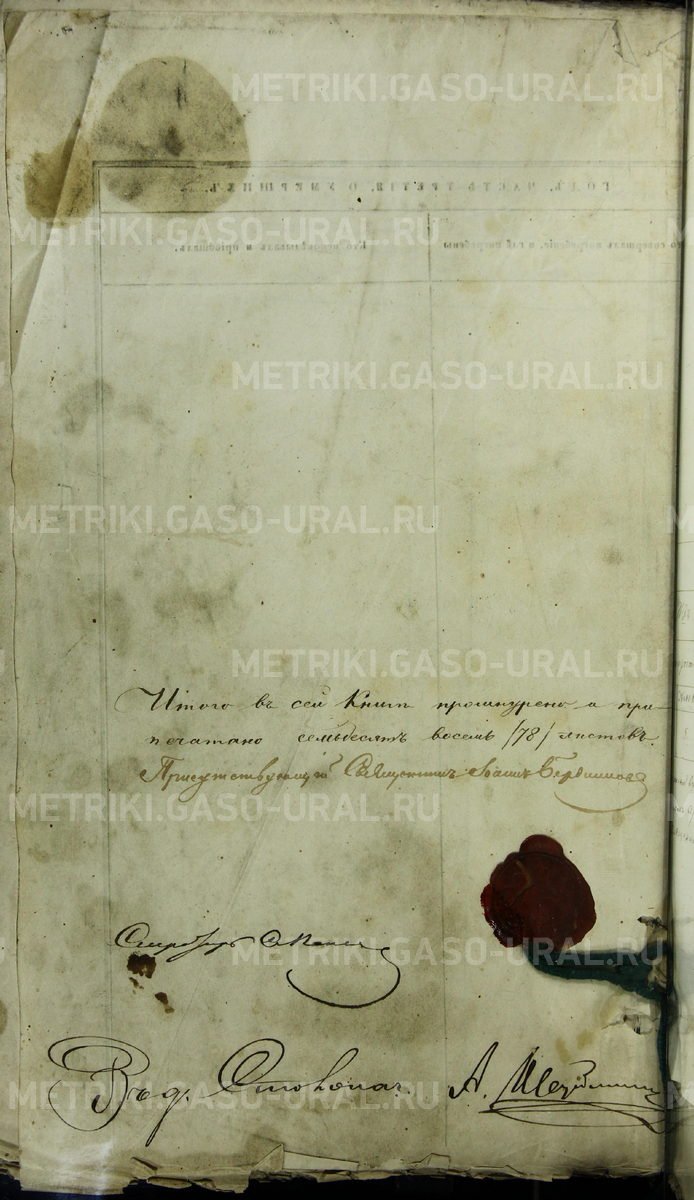 METRIKI.GASO-URAL.RU
ГОДЪ, ЧАСТЬ ТРЕТІЯ, О УМЕРШИХЪ.
Кто исповѣдывалъ и пріобщалъ.
совершалъ погребеніе, и гдѣ погребены
METRIKI.GASO-URAL.RU
METRIKI.GASO-URAL.RU
METRIKI.GASO-URAL.RU
METRIKI.GASO-URAL.RU
Итого въ сей Книгѣ прошнурено и при-
печатано семьдесятъ восемь /78/ листовъ.
METRIKI.GASO-URAL.RU
Присутствующій Священникъ Іоаннъ
METRIKI.GASO-URAL.RU
Секретарь
METRIKI.GASO-URAL.RU
А.